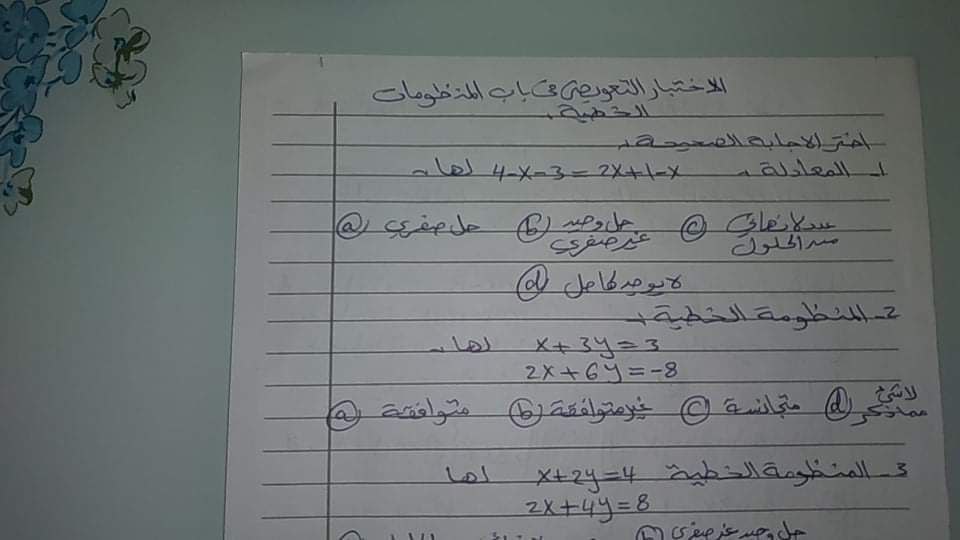 الاختبار التعويضي في باب المنظومات
الخطية .
اختر الاجابة الصحيحة .
1- المعادلة 4-x-3=2x+1-x لها .
a) حل صفري b) حل وحيد c) عدد لا نهائي
غير صفري من الحلول
d) لا يوجد لها حل
2- المنظومة الخطية .
x+3y=3 لها .
2x+6y=-8
a) متوافقة b) غير متوافقة c) متجانسة d) لا شيء
مما ذكر
3- المنظومة الخطية x+2y=4 لها
2x+4y=8
b) حل وحيد غير صفري